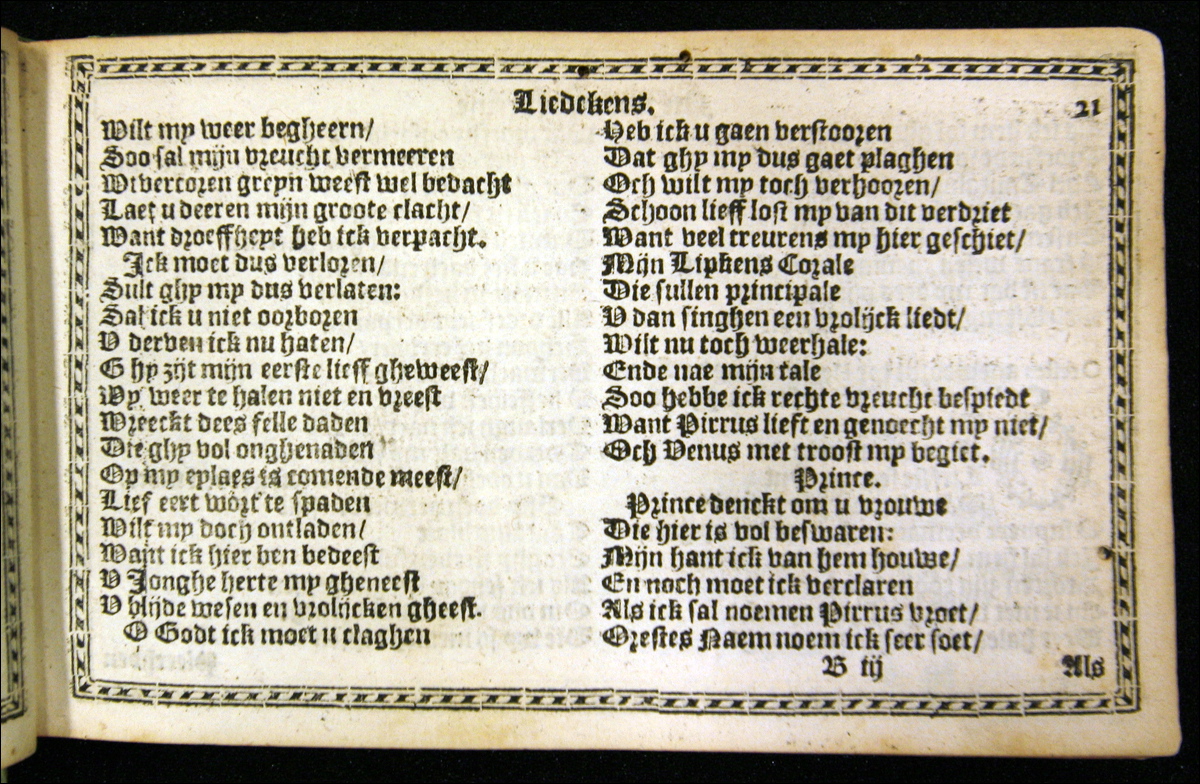 Liedekens.
21
Wilt my weer begheern/
Soo sal mijn vreucht vermeeren
Wtvercoren greyn weest wel bedacht
Laet u deeren mijn groote clacht/
Want droeffheyt heb ick verpacht.
Ick moet dus verloren/
Sult ghy my dus verlaten:
Sal ick u niet oorboren
V derven ick nu haten/
Ghy zijt mijn eerste lieff gheweest/
My weer te halen niet en vreest
Wreeckt dees felle daden
Die ghy vol onghenaden
Op my eylaes is comende meest/
Lief eert wort te spaden
Wilt my doch ontladen/
Want ick hier ben bedeest
V Jonghe herte my gheneest
V blijde wesen en vrolijcken gheest.
O Godt ick moet u claghen
Heb ick u gaen verstooren
Dat ghy my dus gaet plaghen
Och wilt my toch verhooren/
Schoon lieff lost my van dit verdriet
Want veel treurens my hier geschiet/
Mijn Lipkens Corale
Die sullen principale
V dan singhen een vrolijck liedt/
Wilt nu toch weerhale:
Ende nae mijn tale
Soo hebbe ick rechte vreucht bespiedt
Want Pirrus lieft en genoecht my niet/
Och Venus met troost my begiet.
Prince.
Prince denckt om u vrouwe
Die hier is vol beswaren:
Mijn hant ick van hem houwe/
En noch moet ick verclaren
Als ick sal noemen Pirrus vroet/
Orestes Naem noem ick seer soet/
B iij
Als